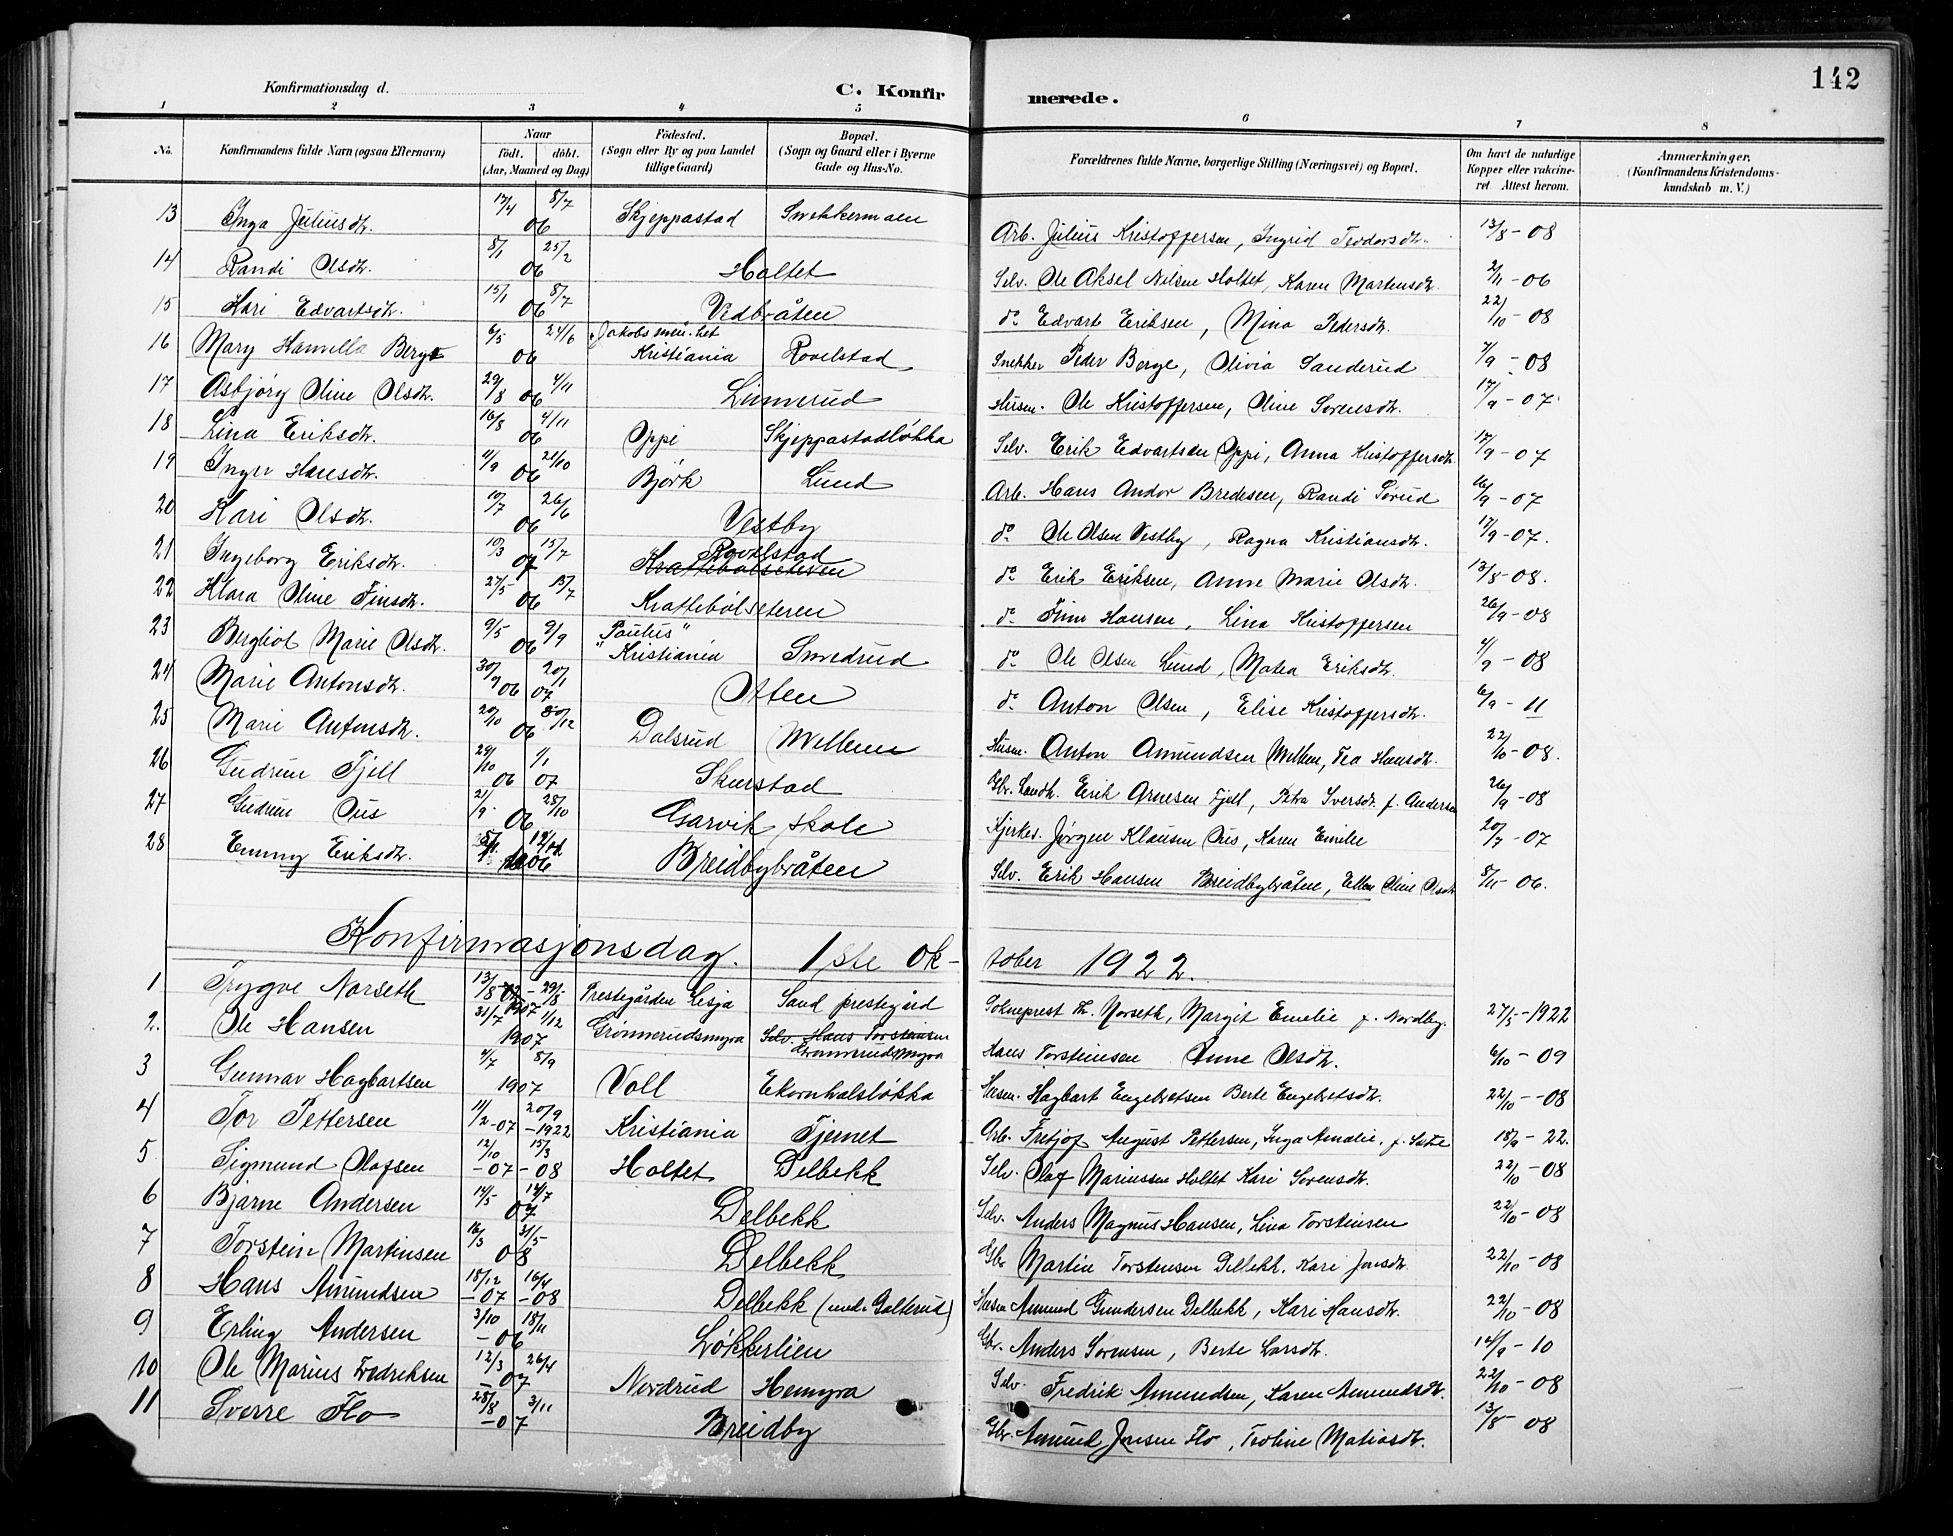 142
Konfirmationsdag d.
C. Konfirmerede.
1 2 3 4 5 6 7 8
No. Konfirmandens fulde Navn (ogsaa Efternavn) Naar født. døbt. (Aar, Maaned og Dag) Fødested. (Sogn eller By og paa Landet tillige Gaard) Bopæl. (Sogn og Gaard eller i Byerne Gade og Hus-No. Forældrenes fulde Navne, borgerlige Stilling (Næringsvei) og Bopæl. Om havt de naturlige Kopper eller vakcineret. Attest herom. Anmærkninger. (Konfirmandens Kristendomskundskab m. V.)
13 Inga Juliusdt. 17/4 8/7 06 Skjeppastad Snekkermoen Arb. Julius Kristoffersen, Ingrid Teodorsdt. 13/8 - 08
14 Randi Olsdt. 8/1 25/2 06 Holtet Selv. Ole Aksel Nilsen Holtet, Karen Martensdt. 2/11 - 06
15 Kari Edvartsdt. 15/1 8/7 06 Vedbråten do Edvart Eriksen, Mina Pedersdt. 22/10 - 08
16 Mary Berge 6/5 24/6 06 Jakobs Kristiania Rovelstad Snekker Peder Berge, Olivia Sanderud 7/9 - 08
17 Asbjørg Oline Olsdt. 29/8 4/11 06 Linnerud Husm. Ole Kristoffersen, Oline Sørensdt. 17/9 - 07
18 Lina Eriksdt. 16/8 4/11 06 Oppi Skjeppastadløkka Selv. Erik Edvartsen Oppi, Anna Kristoffersdt. 17/9 - 07
19 Inger Hansdt. 11/9 21/10 06 Bjørk Lund Arb. Hans Andor Bredesen, Randi Sørud 16/9 - 07
20 Kari Olsdt. 26/6 06 Vestby do Ole Olsen Vestby, Ragna Kristiansdt. 17/9 - 07.
21 Ingeborg Eriksdt. 10/3 15/7 07 Rovelstad Krattebølseteren do Erik Eriksen, Anne Marie Olsdt. 13/8 - 08.
22 Klara Oline Finsdt. 27/5 06 Krattebølseteren do Finn Hansen, Lina Kristoffersen 26/9 - 08
23 Bergliot Marie Olsdt. 9/5 9/9 06 "Paulus" Kristiania Smedrud do Ole Olsen Lund, Matea Eriksdt. 4/9 - 08
24 Marie Antonsdt. 30/9 06 20/1 07 Otten do Anton Olsen, Elise Kristoffersdt. 6/9 - 11
25 Marie Antonsdt. 20/10 30/12 06 Dalsrud Mellem Husm. Anton Amundsen Mellem, Tea Hansdt. 22/10 - 08.
26 Gudrun Fjell 29/10 06 1/1 07 Skurstad Gbr. Landh. Erik Arnesen Fjell, Petra Iversdt. f. Andersen 26/9 - 08
27 Gudrun Ous 21/9 28/10 06 Garvik skole Kjerkes. Jørgen Klausen Ous, Karen Emilie 20/7 - 07
28 Emmy Eriksdt. 06 Breidbybråten Selv. Erik Hansen Breidbybråten, Ellen Oline Olsdt. 8/11 - 06.
Konfirmasjonsdag. 1ste oktober 1922.
1 Trygve Norseth 13/8 - 29/8 1907 Prestegården Lesja Sand prestegård Sokneprest Th. Norseth, Margit Emelie f. Nordby. 27/5 - 1922
2. Ole Hansen 31/7 1/12 1907 Grønnerudsmyra Selv. Hans Torsteinsen Grønnerudsmyra Hans Torsteinsen Anne Olsdt. 6/10 - 09
3 Gunnar Hagbartsen 4/7 8/9 1907 Voll Ekornhalsløkka Husm. Hagbart Engebretsen Berte Engebretsdt. 22/10 - 08
4 Tor Pettersen 11/2 - 07 20/9 - 1922 Kristiania Tjernet Arb. Fretjof August Pettersen, Inga Amalie, f. 18/9 - 22.
5 Sigmund Olafsen 12/10 - 07 15/3 - 08 Holtet Delbekk Selv. Olaf Mariussen Holtet Kari Sørensdt. 22/10 - 08
6 Bjarne Andersen 14/5 14/7 07 Delbekk Selv. Anders Magnus Hansen, Lina Torsteinsen 22/10 - 08
7 Torstein Martinsen 16/3 31/5 08 Delbekk Gbr Martin Torstensen Delbekk. Kari Jensdt. 22/10 - 08
8 Hans Amundsen 18/12 - 07 16/4 - 08 Delbekk (und. Galterud) Husm Amund Gundersen Delbekk, Kari Hansdt. 22/10 - 08
9 Erling Andersen 3/10 18/11 - 06 Løkkerlien Gbr. Anders Sørensen, Berte Larsdt. 14/9 - 10
10 Ole Marius Fredriksen 12/3 26/4 - 07 Nordrud Hemyra Selv. Fredrik Amundsen, Karen Amundsdt. 22/10 - 08
11 Sverre Flo 28/8 3/11 - 07 Breidby Gbr. Amund Jensen Flo, Teoline Matiasdt. 13/8 - 08